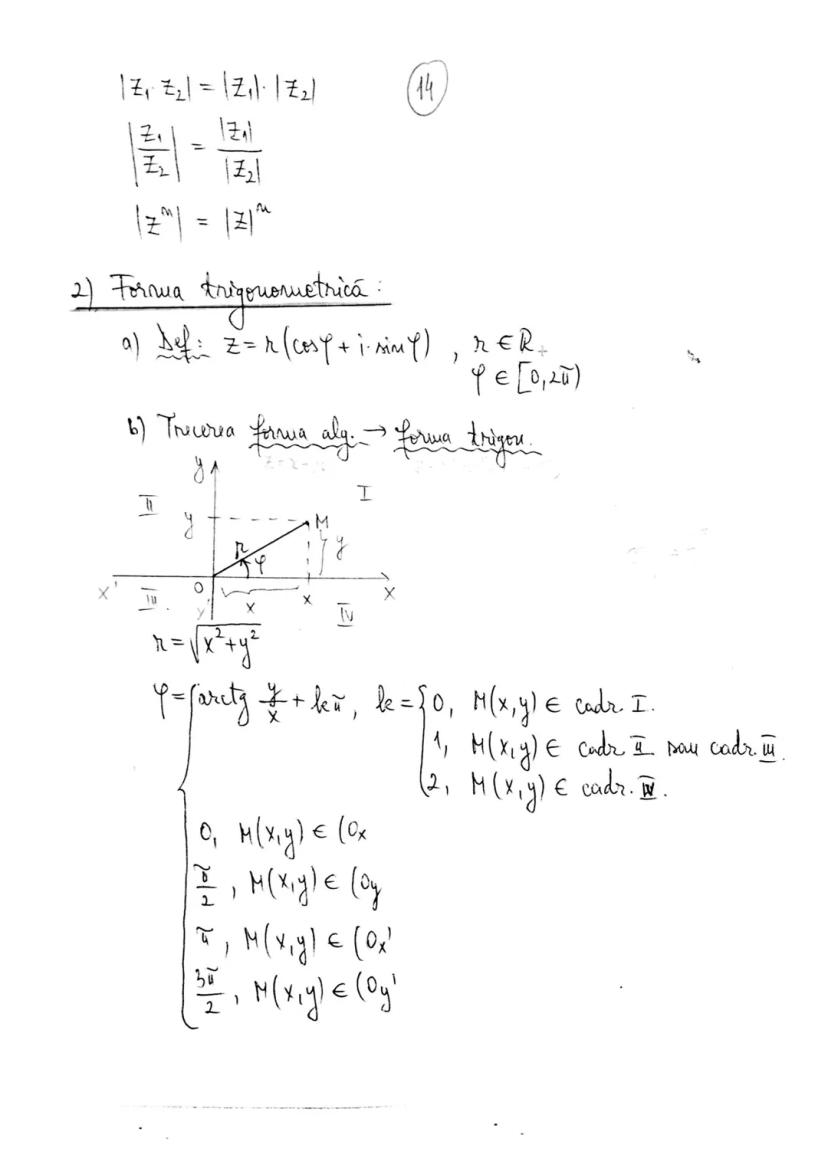 |z₁·z₂| = |z₁|·|z₂|
14
|z₁/z₂| = |z₁|/|z₂|
|zⁿ| = |z|ⁿ
2) Forma trigonometrică:
a) Def: z = r(cosφ + i·sinφ), r ∈ R₊
φ ∈ [0,2π)
b) Trecerea forma alg. → forma trigon.
y
II
I
y
M
r
φ
y
x'
O
x
III
y'
x
x
IV
r = √(x²+y²)
φ = { arctg y/x + kπ, k = { 0, M(x,y) ∈ cadr. I.
1, M(x,y) ∈ cadr. II sau cadr. III.
2, M(x,y) ∈ cadr. IV.
0, M(x,y) ∈ (Ox
π/2, M(x,y) ∈ (Oy
π, M(x,y) ∈ (Ox'
3π/2, M(x,y) ∈ (Oy'